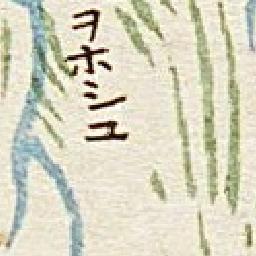 ヲホシユ